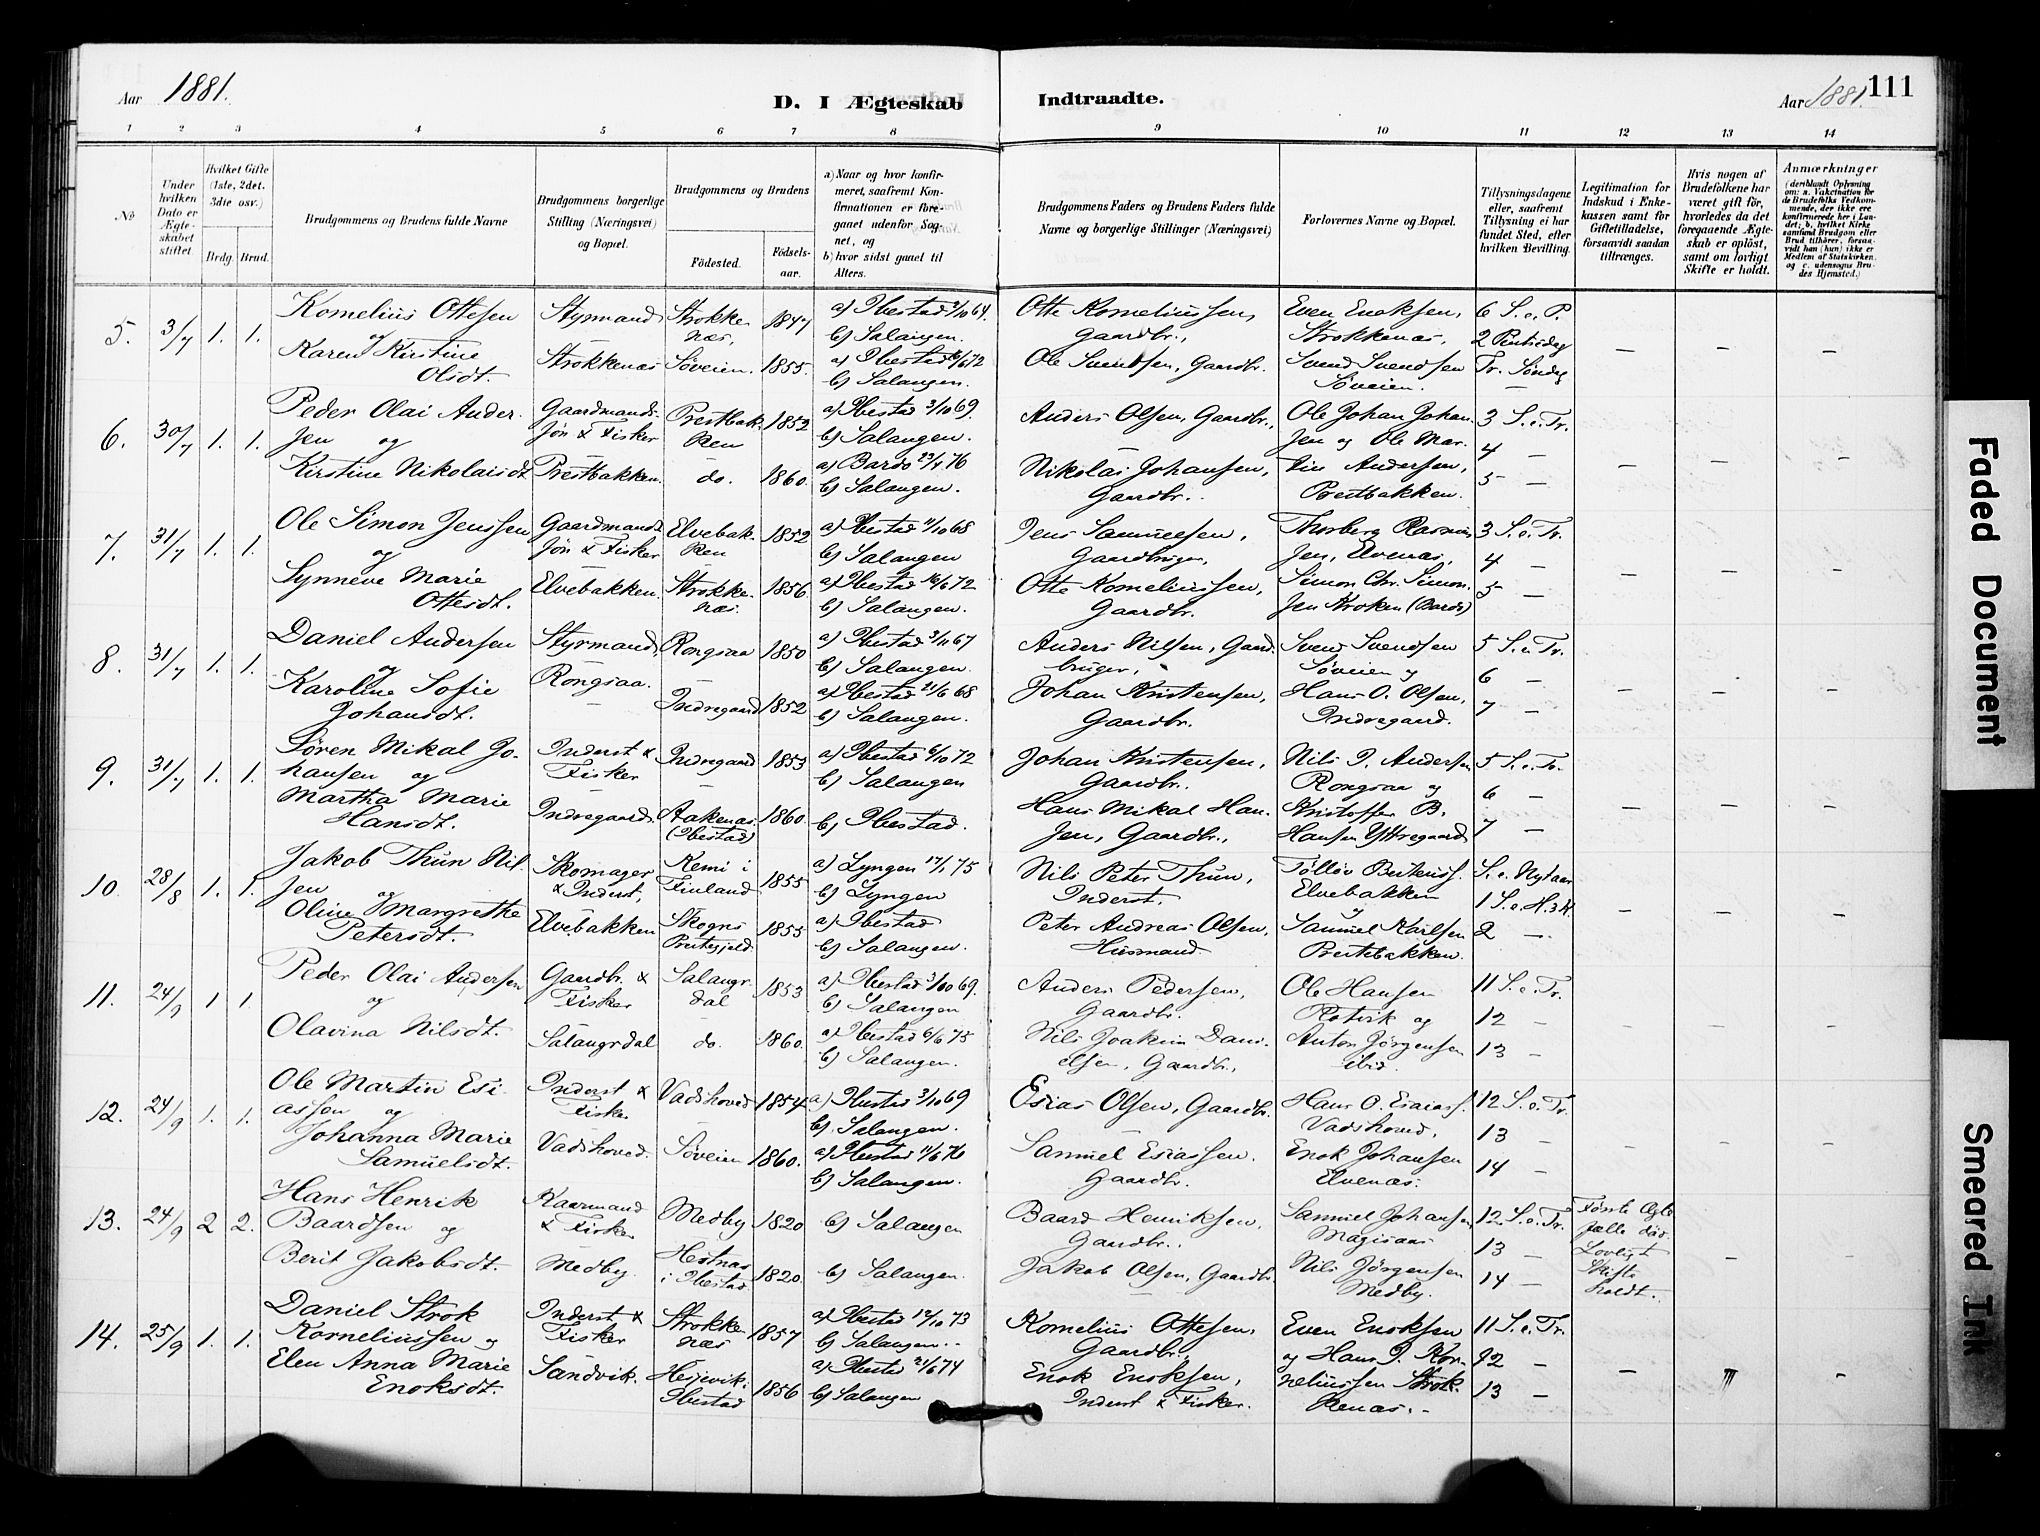 Aar 1881.
D. I Ægteskab Indtraadte.
Aar 1881. 111
1 2 3 4 5 6 7 8 9 10 11 12 13 14
No
Under hvilken Dato er Ægteskabet stiftet.
Hvilket Gifte (1ste, 2det, 3die osv.)
Brdg. Brud.
Brudgommens og Brudens fulde Navne
Brudgommens borgerlige Stilling (Næringsvei) og Bopæl.
Brudgommens og Brudens
Fødested. Fødselsaar.
a) Naar og hvor konfirmeret, saafremt Konfirmationen er foregaaet udenfor Sognet, og
b) hvor sidst gaaet til Alters.
Brudgommens Faders og Brudens Faders fulde Navne og borgerlige Stillinger (Næringsvei)
Forlovernes Navne og Bopæl.
Tillysningsdagene eller, saafremt Tillysning ei har fundet Sted, efter hvilken Bevilling.
Legitimation for Indskud i Enkekassen samt for Giftetilladelse, forsaavidt saadan tiltrænges.
Hvis nogen af Brudefolkene har været gift før, hvorledes da det foregaaende Ægteskab er opløst, samt om lovligt Skifte er holdt.
Anmærkninger
(deriblandt Oplysning om: a. Vakcination for de Brudefolks Vedkommende, der ikke ere konfirmerede her i Landet; b. hvilket Kirkesamfund Brudgom eller Brud tilhører, forsaavidt han (hun) ikke er Medlem af Statskirken, og c. udensogns Brudes Hjemsted.)
5. 3/7 1. 1. Kornelius Ottesen Styrmand Strokkenæs, 1847 a) Ibestad 2/10 64. Otte Korneliussen, Even Enoksen, 6 S. e. P.
og b) Salangen. Gaardbr., Strokkenæs, 2 Pintsedag
Karen Kirstine Strokkenæs Søveien. 1855. a) Ibestad 16/6 72 Ole Svendsen, Gaardbr. Svend Svendsen Tr. Søndag
Olsdt. b) Salangen. Søveien. — — — —
6. 30/7 1. 1. Peder Olai Ander- Gaardmands- Prestbak- 1852 a) Ibestad 3/10 69. Anders Olsen, Gaardbr., Ole Johan Johan- 3 S. e. Tr.
sen og søn & Fisker ken b) Salangen. sen og Ole Mar- 4 —
Kirstine Nikolaisdt. Prestbakken. do. 1860. a) Bardo 23/7 76 Nikolai Johansen, tin Andersen, 5 —
b) Salangen. Gaardbr. Prestbakken. — — —
7. 31/7 1. 1. Ole Simon Jenssen Gaardmands- Elvebak- 1852 a) Ibestad 11/10 68 Jens Samuelsen, Thorberg Rasmus- 3 S. e. Tr.
og søn & Fisker ken b) Salangen Gaardbruger, sen, Elvenæs, 4 —
Synneve Marie Elvebakken. Strokke- 1856 a) Ibestad 16/6 72 Otte Korneliussen, Simon Chr. Simon- 5 —
Ottesdt. næs. b) Salangen. Gaardbr. sen Kroken (Bardo) — — —
8. 31/7 1. 1. Daniel Andersen Styrmand, Rongsaa 1850 a) Ibestad 3/11 67 Anders Nilsen, Gaard- Svend Svendsen 5 S. e. Tr.
og b) Salangen. bruger, Søveien og 6 —
Karoline Sofie Rongsaa. Indregaard 1852 a) Ibestad 21/6 68 Johan Kristensen, Hans O. Olsen, 7 —
Johansdt. b) Salangen. Gaardbr. Indregaard. — — —
9. 31/7 1. 1. Søren Mikal Jo- Inderst & Indregaard 1853 a) Ibestad 6/10 72 Johan Kristensen, Nils P. Andersen 5 S. e. Tr.
hansen og Fisker b) Salangen Gaardbr. Rongsaa og 6 —
Martha Marie Indregaard. Aakenæs. 1860. b) Ibestad. Hans Mikal Han- Kristoffer B. 7 —
Hansdt. (Ibestad) sen, Gaardbr., Hansen Yttregaard — — —
10. 28/8 1. 1. Jakob Thun Nil- Skomager Kemi i 1855 a) Lyngen 17/1 75 Nils Peter Thun, S. e. Nytaar
sen og & Inderst, Finland b) Lyngen Inderst. Elvebakken 1 S. e. H. 3 K.
Oline Margrethe Elvebakken Skogns 1855 a) Ibestad Peter Andreas Olsen, Samuel Karlsen 2 —
Petersdt. Prestegjeld b) Salangen. Husmand. Prestebakken. — — —
11. 24/9 1 1. Peder Olai Andersen Gaardbr. & Salangs- 1853 a) Ibestad 3/10 69. Anders Pedersen, Ole Hansen 11 S. e. Tr.
og Fisker dal b) Salangen Gaardbr. Rotvik og 12 —
Olavina Nilsdt. Salangsdal do. 1860. a) Ibestad 6/6 75 Nils Joakim Dani- Anton Jørgensen 13 —
b) Salangen. elsen, Gaardbr., ibid. — — —
12. 24/9 1. 1. Ole Martin Esi- Inderst & Vadshoved 1854 a) Ibestad 3/10 69 Esias Olsen, Gaardbr. Hans O. Esaiass. 12 S. e. Tr.
assen og Fisker b) Salangen. Vadshoved, 13 —
Johanna Marie Vadshoved. Søveien 1860. a) Ibestad 11/6 76 Samuel Esiassen. Enok Johansen 14 —
Samuelsdt. b) Salangen. Gaardbr. Elvenæs. — — —
13. 24/9 2 2. Hans Henrik Kaarmand Medby 1820 b) Salangen Baard Henriksen, Samuel Johansen 12 S. e. Tr. Første Ægte-
Baardsen og & Fisker Gaardbr., 13 — fælle død.
Berit Jakobsdt. Medby. Hestnæs 1820. b) Salangen. Jakob Olsen, Gaardbr. Nils Jørgensen 14 — Lovligt Skifte
i Ibestad Medby. holdt. — —
14. 25/9 1. 1. Daniel Strok Inderst & Strokke- 1857 a) Ibestad 12/10 73 Kornelius Ottesen, Even Enoksen 11 S. e. Tr.
Korneliussen og Fisker næs b) Salangen. Gaardbr., og Hans P. Kor- 12 —
Elen Anna Marie Sandvik. 1856 a) Ibestad 21/6 74 Enok Enoksen, neliussen Strok- 13 —
Enoksdt. Ibestad b) Salangen Inderst & Fisker. kenæs. — — —
Faded Document
Smeared Ink